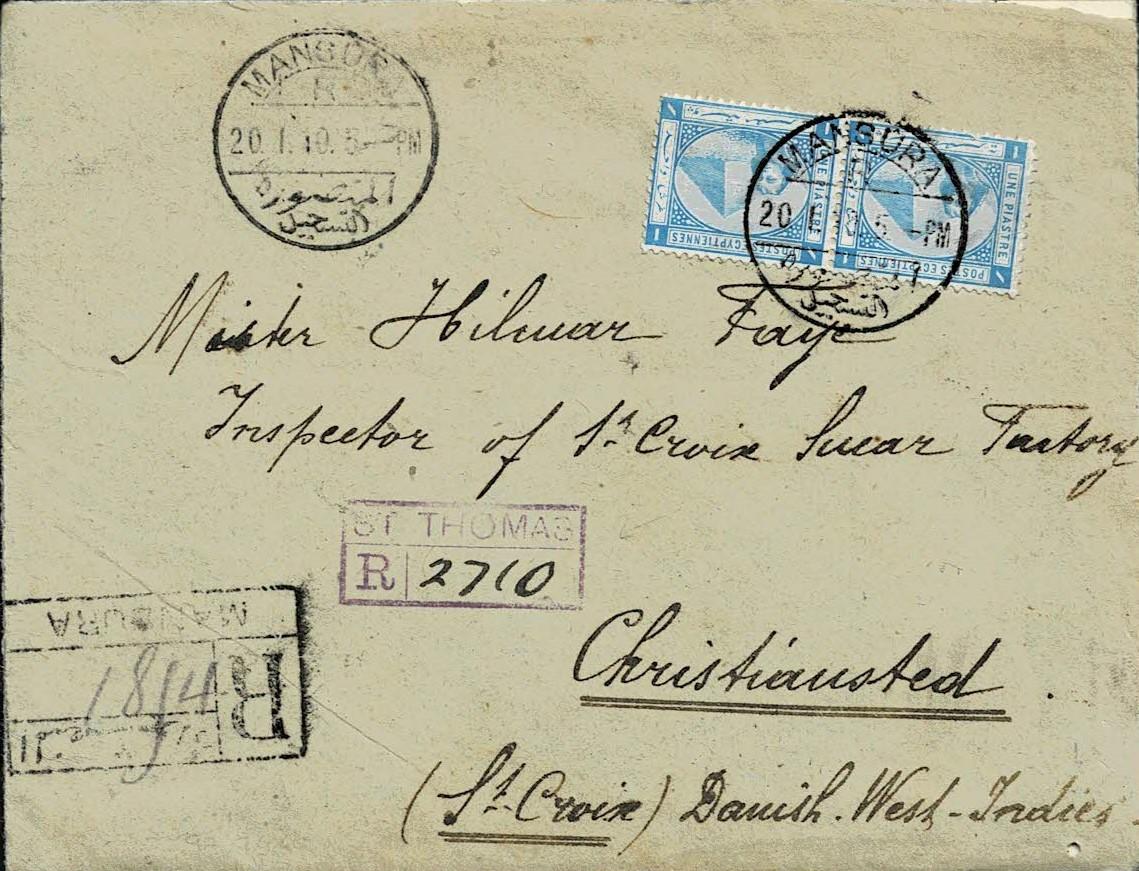 MANSURA
R
20.I.10.5-PM
المنصورة
التسجيل
UNE PIASTRE
POSTES EGYPTIENNES
UNE PIASTRE
POSTES EGYPTIENNES
MANSURA
R
20 I 10 5 -PM
المنصورة
التسجيل
Mister Hilmar Faye
Inspector of St Croix Sucar Factory
ST THOMAS
R 2710
MANSURA
R
1814
Christiansted.
(St Croix) Danish. West-Indies.